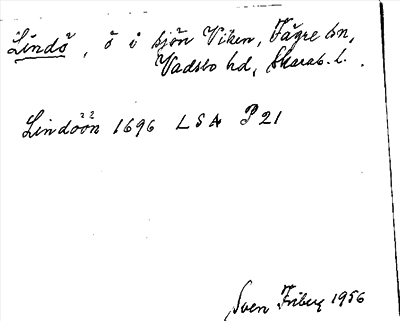 Lindö, ö i sjön Viken, Fägre sn,
Vadsbo hd, Skarab. l.
Lindöön 1696 LSA P 21
Sven Friberg 1956